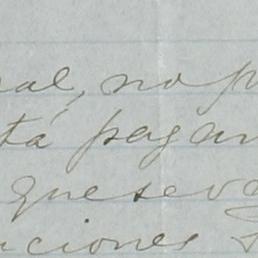 al, no p
tá pagan
que se va
uciones